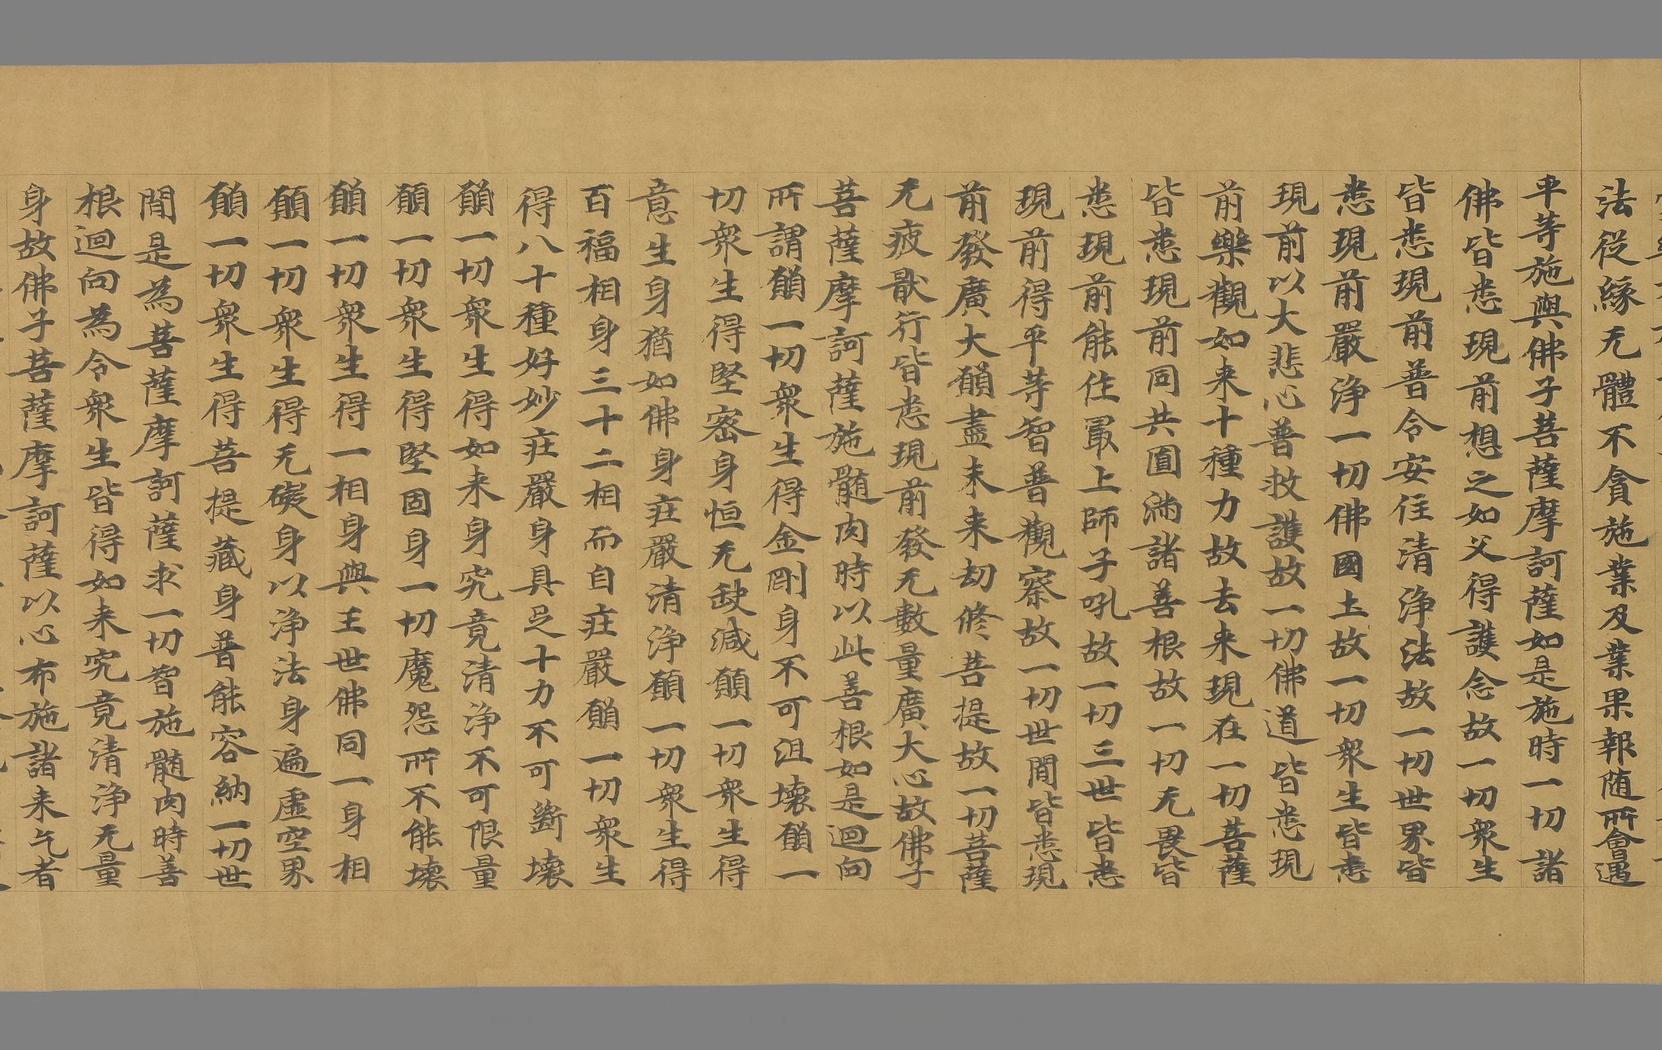 法從緣无體不貪施業及業果報随所會遇
平等施與佛子菩薩摩訶薩如是施時一切諸
佛皆悉現前想之如父得護念故一切衆生
皆悉現前普令安住清淨法故一切世界皆
悉現前嚴淨一切佛國土故一切衆生皆悉
現前以大悲心普救護故一切佛道皆悉現
前樂觀如来十種力故去来現在一切菩薩
皆悉現前同共圓滿諸善根故一切无畏皆
悉現前能住冣上師子吼故一切三世皆悉
現前得平等智普觀察故一切世間皆悉現
前發廣大願盡未来劫修菩提故一切菩薩
无疲猒行皆悉現前發无數量廣大心故佛子
菩薩摩訶薩施髓肉時以此善根如是迴向
所謂願一切衆生得金剛身不可沮壞願一
切衆生得堅密身恒无缺减願一切衆生得
意生身猶如佛身莊嚴清淨願一切衆生得
百福相身三十二相而自莊嚴願一切衆生
得八十種好妙莊嚴身具足十力不可斷壞
願一切衆生得如来身究竟清淨不可限量
願一切衆生得堅固身一切魔怨所不能壞
願一切衆生得一相身與三世佛同一身相
願一切衆生得无礙身以淨法身遍虛空界
願一切衆生得菩提藏身普能容納一切世
間是為菩薩摩訶薩求一切智施髓肉時善
根迴向為令衆生皆得如来究竟清淨无量
身故佛子菩薩摩訶薩以心布施諸来乞者